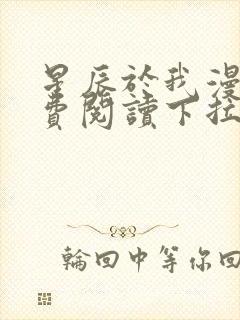 星辰於我漫
費閱讀下拉
輪回中等你回